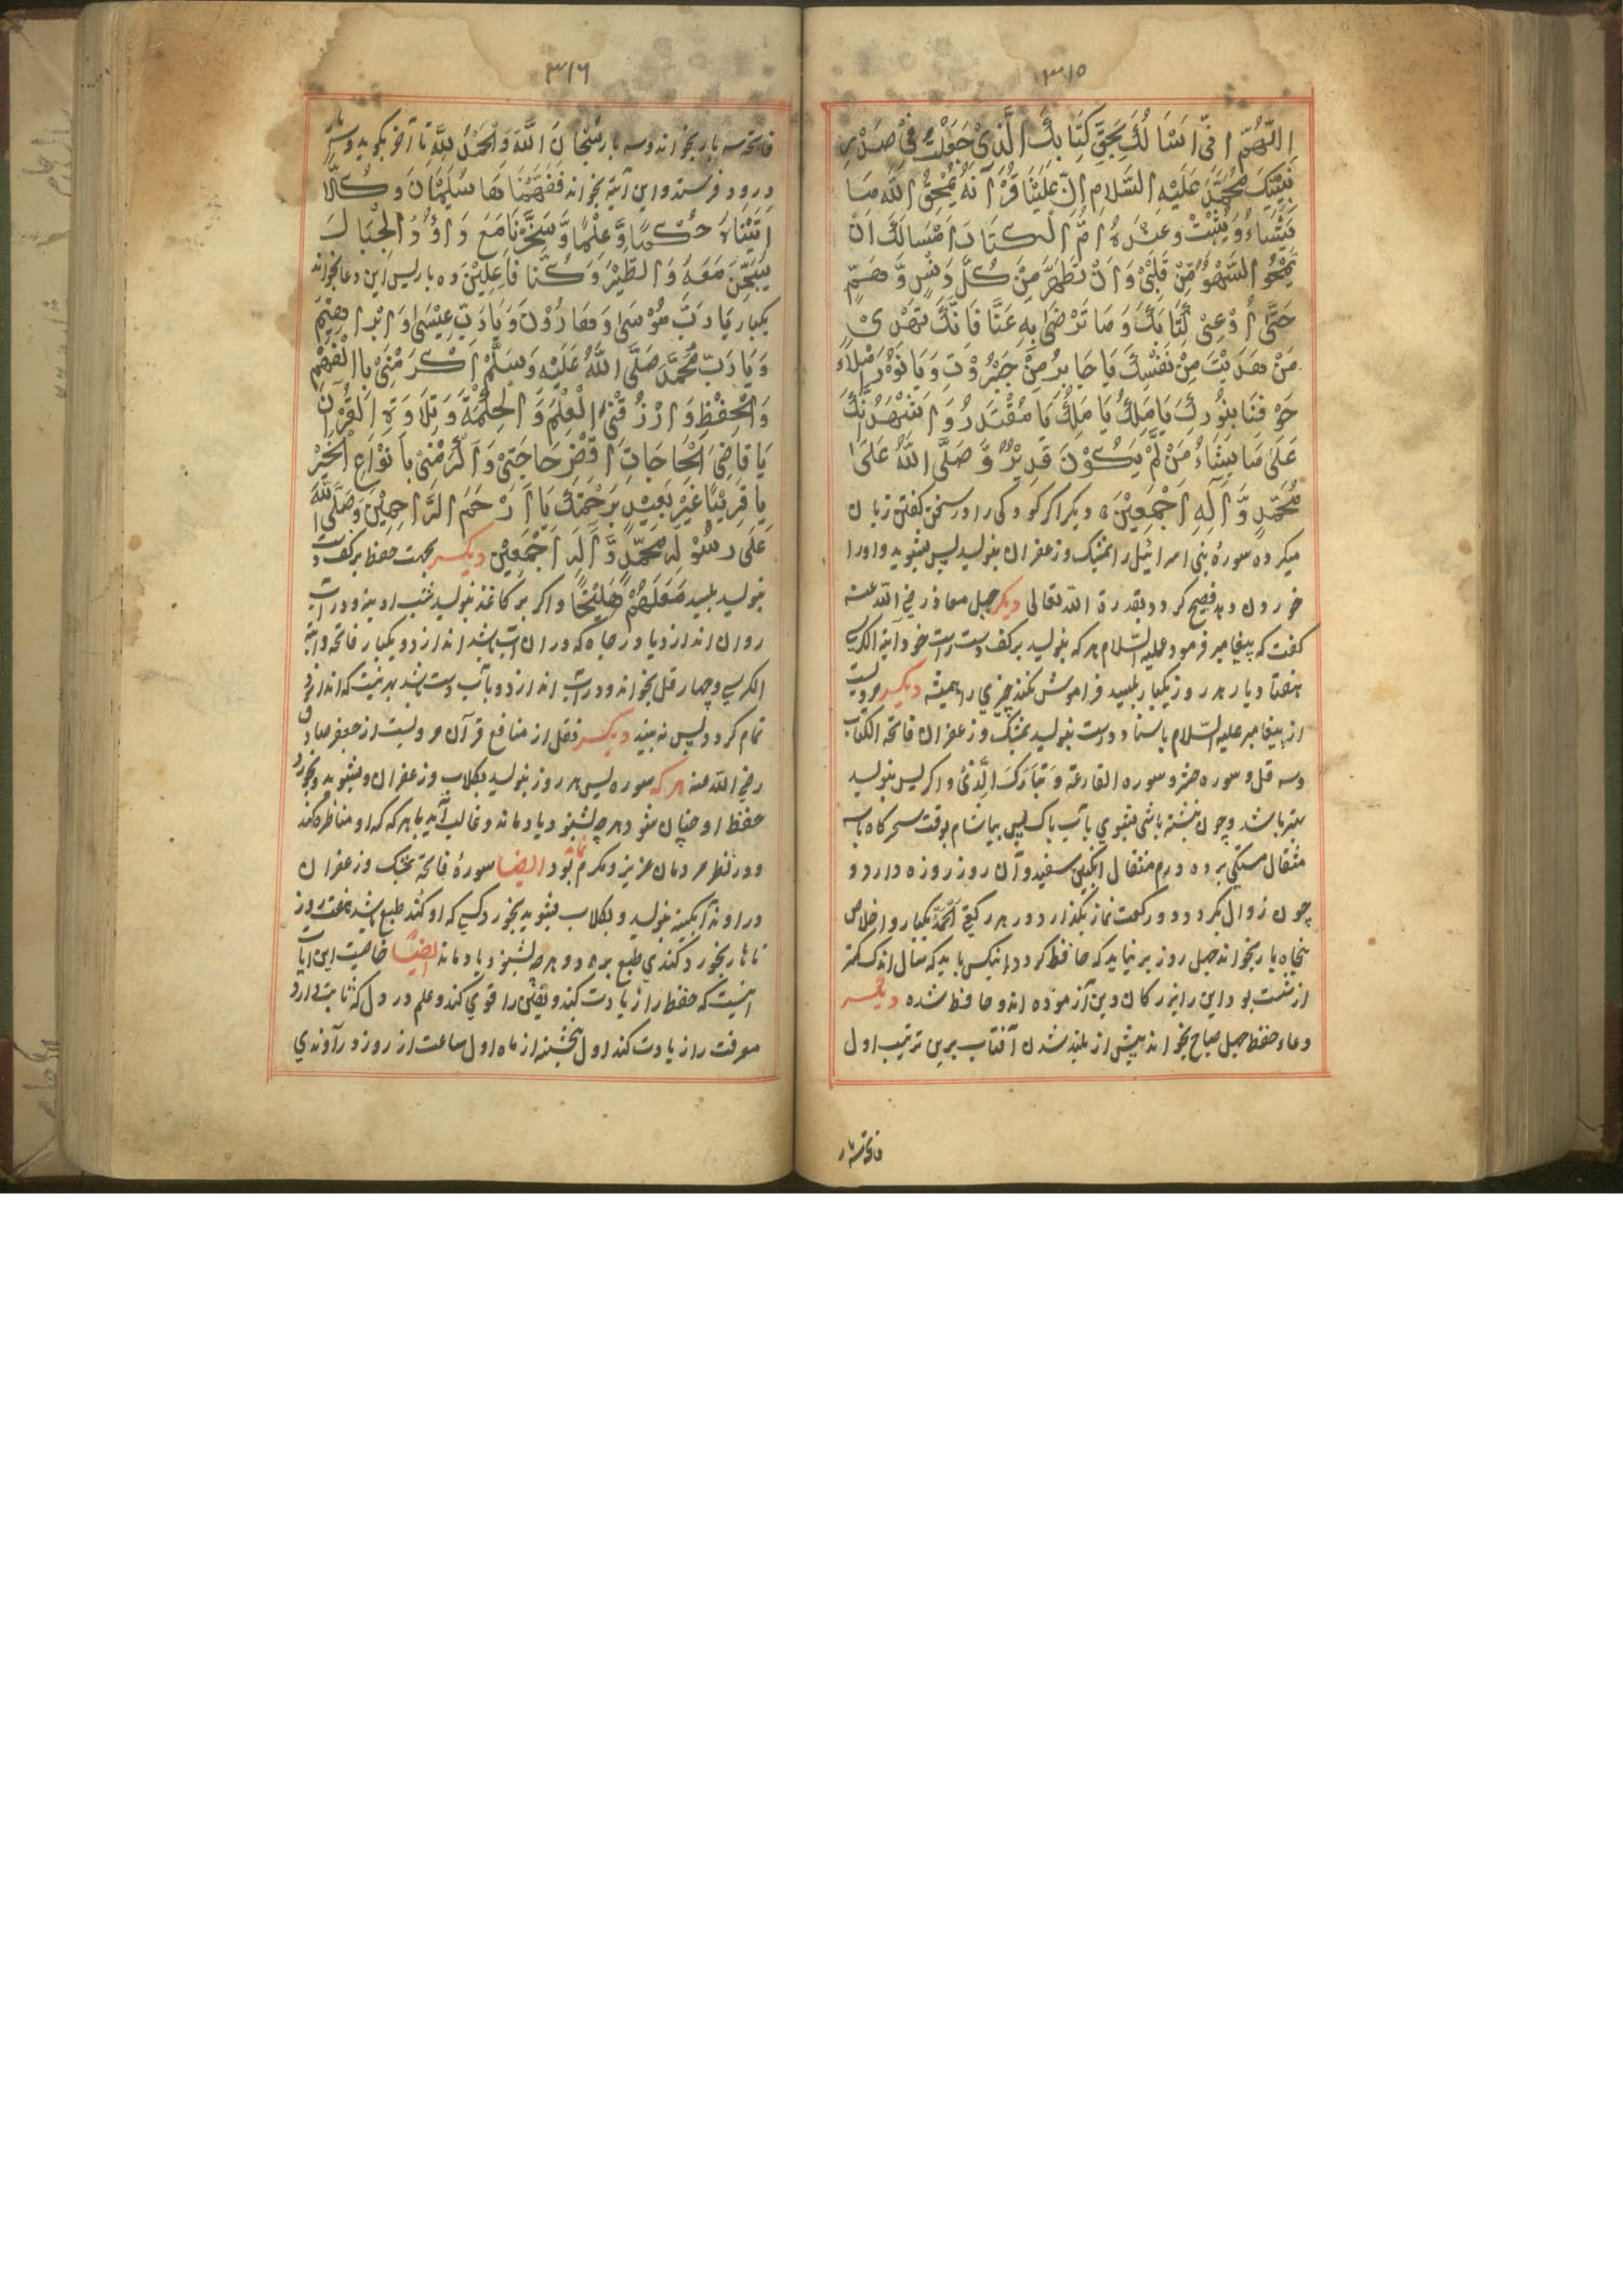 ٣١٥
اللّهُمَّ اِنِّی اَسْاَلُكَ بِحَقِّ كِتَابِكَ الَّذِیْ جَعَلْتَهُ فِیْ صَدْرِ
نَبِیِّكَ مُحَمَّدٍ عَلَیْهِ السَّلَامِ اِنَّ عَلَیْنَا قُرْآنَهُ یَمْحَقُ اللّٰهُ مَا
یَشَاءُ وَیُثْبِتُ وَعِنْدَهُ اُمُّ الْكِتَابِ اَسْاَلُكَ اَنْ
یَمْحُوَ السَّهْوَ مِنْ قَلْبِیْ وَاَنْ تُطَهِّرَ مِنْ كُلِّ دَنَسٍ وَّهَمٍّ
حَتّٰی اُوْعِیَ كِتَابَكَ وَمَا تَرْضٰی بِهِ عَنَّا فَاِنَّكَ تَهْدِیْ
مَنْ هَدَیْتَ مِنْ نَفْسِكَ یَا جَابِرُ مِنْ جَبَرُوْتِ وَیَا نُوْرُ
بِنُورِكَ یَا مَلِكُ یَا مَلِكُ یَا مُقْتَدِرُ وَ
عَلٰی مَا یَشَاءُ مَنْ لَمْ یَكُوْنَ قَدِیْرٌ وَّصَلَّی اللّٰهُ عَلٰی
مُحَمَّدٍ وَّآلِهِ اَجْمَعِیْنَ ه دیكر اكر كودكی را در سخن كفتن زبان
میكرده سورهٔ بنی اسرائیل را بمشك وزعفران بنولید پس بشوید واورا
خوردن دهد فصیح كردد بقدرة اللّه تعالی دیكر جبل معاذ رضی اللّه عنه
كفت كه پیغامبر فرمود علیه السّلام هركه بنولید بركف دست راست خود آیة الكرسی
هفتاد بار هر روز یكبار بلیسد فراموش نكند چیزی را همیشه دیكر مرویست
از پیغامبر علیه السّلام باسناد درست بنولید بمشك وزعفران فاتحة الكتاب
وسه قل و سوره حشر و سوره القارعة وَتَبَارَكَ الَّذِیْ واكر یس بنولید
بهتر باشد وچون نبشته باشی بشوی بآب پاك پس بیاشام بوقت سحركاه با سه
مثقال سنكی بر ده درم مثقال انكبین سفید وآن روز روزه دارد و
چون زوال بكردد دو ركعت نماز بكذارد در هر ركعتی اَلْحَمْدُ یكبار و اخلاص
پنجاه بار بخواند چهل روز بر نیاید كه حافظ كردد انیكس باید كه سال اندك كمتر
از شست بود این را بزركان دین آزموده اند وحافظ شده دیكر
دعاء حفظ چهل صباح بخواند پیش از بلند شدن آفتاب برین ترتیب اول
فاتحه سه بار
٣١٦
فاتحه سه بار بخواند وسه بار سُبْحَانَ اللّٰهِ وَالْحَمْدُ لِلّٰهِ تا آخر بكوید وسه بار
درود فرستد واین آیة بخواند فَفَهَّمْنَا هَا سُلَیْمَانَ وَكُلًّا
اٰتَیْنَاهُ حُكْمًا وَّعِلْمًا وَّسَخَّرْنَا مَعَ دَاؤُدَ الْجِبَالَ
یُسَبِّحْنَ مَعَهُ وَالطَّیْرَ وَكُنَّا فَاعِلِیْنَ ده بار پس این دعا بخواند
یكبار یَا رَبَّ مُوْسٰی وَهَارُوْنَ وَیَا رَبَّ عِیْسٰی وَاِبْرَاهِیْمَ
وَیَا رَبَّ مُحَمَّدٍ صَلَّی اللّٰهُ عَلَیْهِ وَسَلَّمْ اَكْرِمْنِیْ بِاالْفَهْمِ
وَالْحِفْظِ وَارْزُقْنِیْ الْعِلْمَ وَالْحِكْمَةَ وَتِلَاوَةِ الْقُرْآنِ
یَا قَاضِیَ الْحَاجَاتِ اِقْضِ حَاجَتِیْ وَاَكْرِمْنِیْ بِاَنْوَاعِ الْخَیْرِ
یَا قَرِیْبًا غَیْرَ بَعِیْدٍ بِرَحْمَتِكَ یَا اَرْحَمَ الرَّاحِمِیْنَ وَصَلَّی اللّٰهُ
عَلٰی رَسُوْلِهِ مُحَمَّدٍ وَّاٰلِهِ اَجْمَعِیْنَ دیكر بجهت حفظ بركف دست
بنولید بلیسد واكر بر كاغذ بنولید شب ادینه ودر آب
روان اندازد یا در چاه كه در ان آب باشد اندازد ویكبار فاتحه وآیة
الكرسی وچهار قل بخواند ودر آب اندازد وبآب دست بشد بهر نیت كه اندازد
تمام كردد پس نه بیند دیكر نقل از منافع قرآن مرویست از جعفر صادق
رضی اللّه عنه هركه سوره یس هر روز بنولید بكلاب وزعفران وبشوید وبخورد
حفظ او چنان شود هرچه بشنود یاد ماند وغالب آید با هركه كه او مناظره كند
ودر نظر مردمان عزیز ومكرم نماید بود ایضا سورهٔ فاتحه بمشك وزعفران
در اوند آبكینه بنولید و بكلاب بشوید بخورد كسی كه او كند طبع باشد هفت روز
ناهار بخورد كندی طبع برود وهرچه بشنود یاد ماند ایضًا خاصیت این آیات
اینست كه حفظ را زیادت كند ویقین را قوی كند وعلم در دل كه ثابت دارد
معرفت را زیادت كند اول پنجشنبه از ماه اول ساعت از روز در آوندی